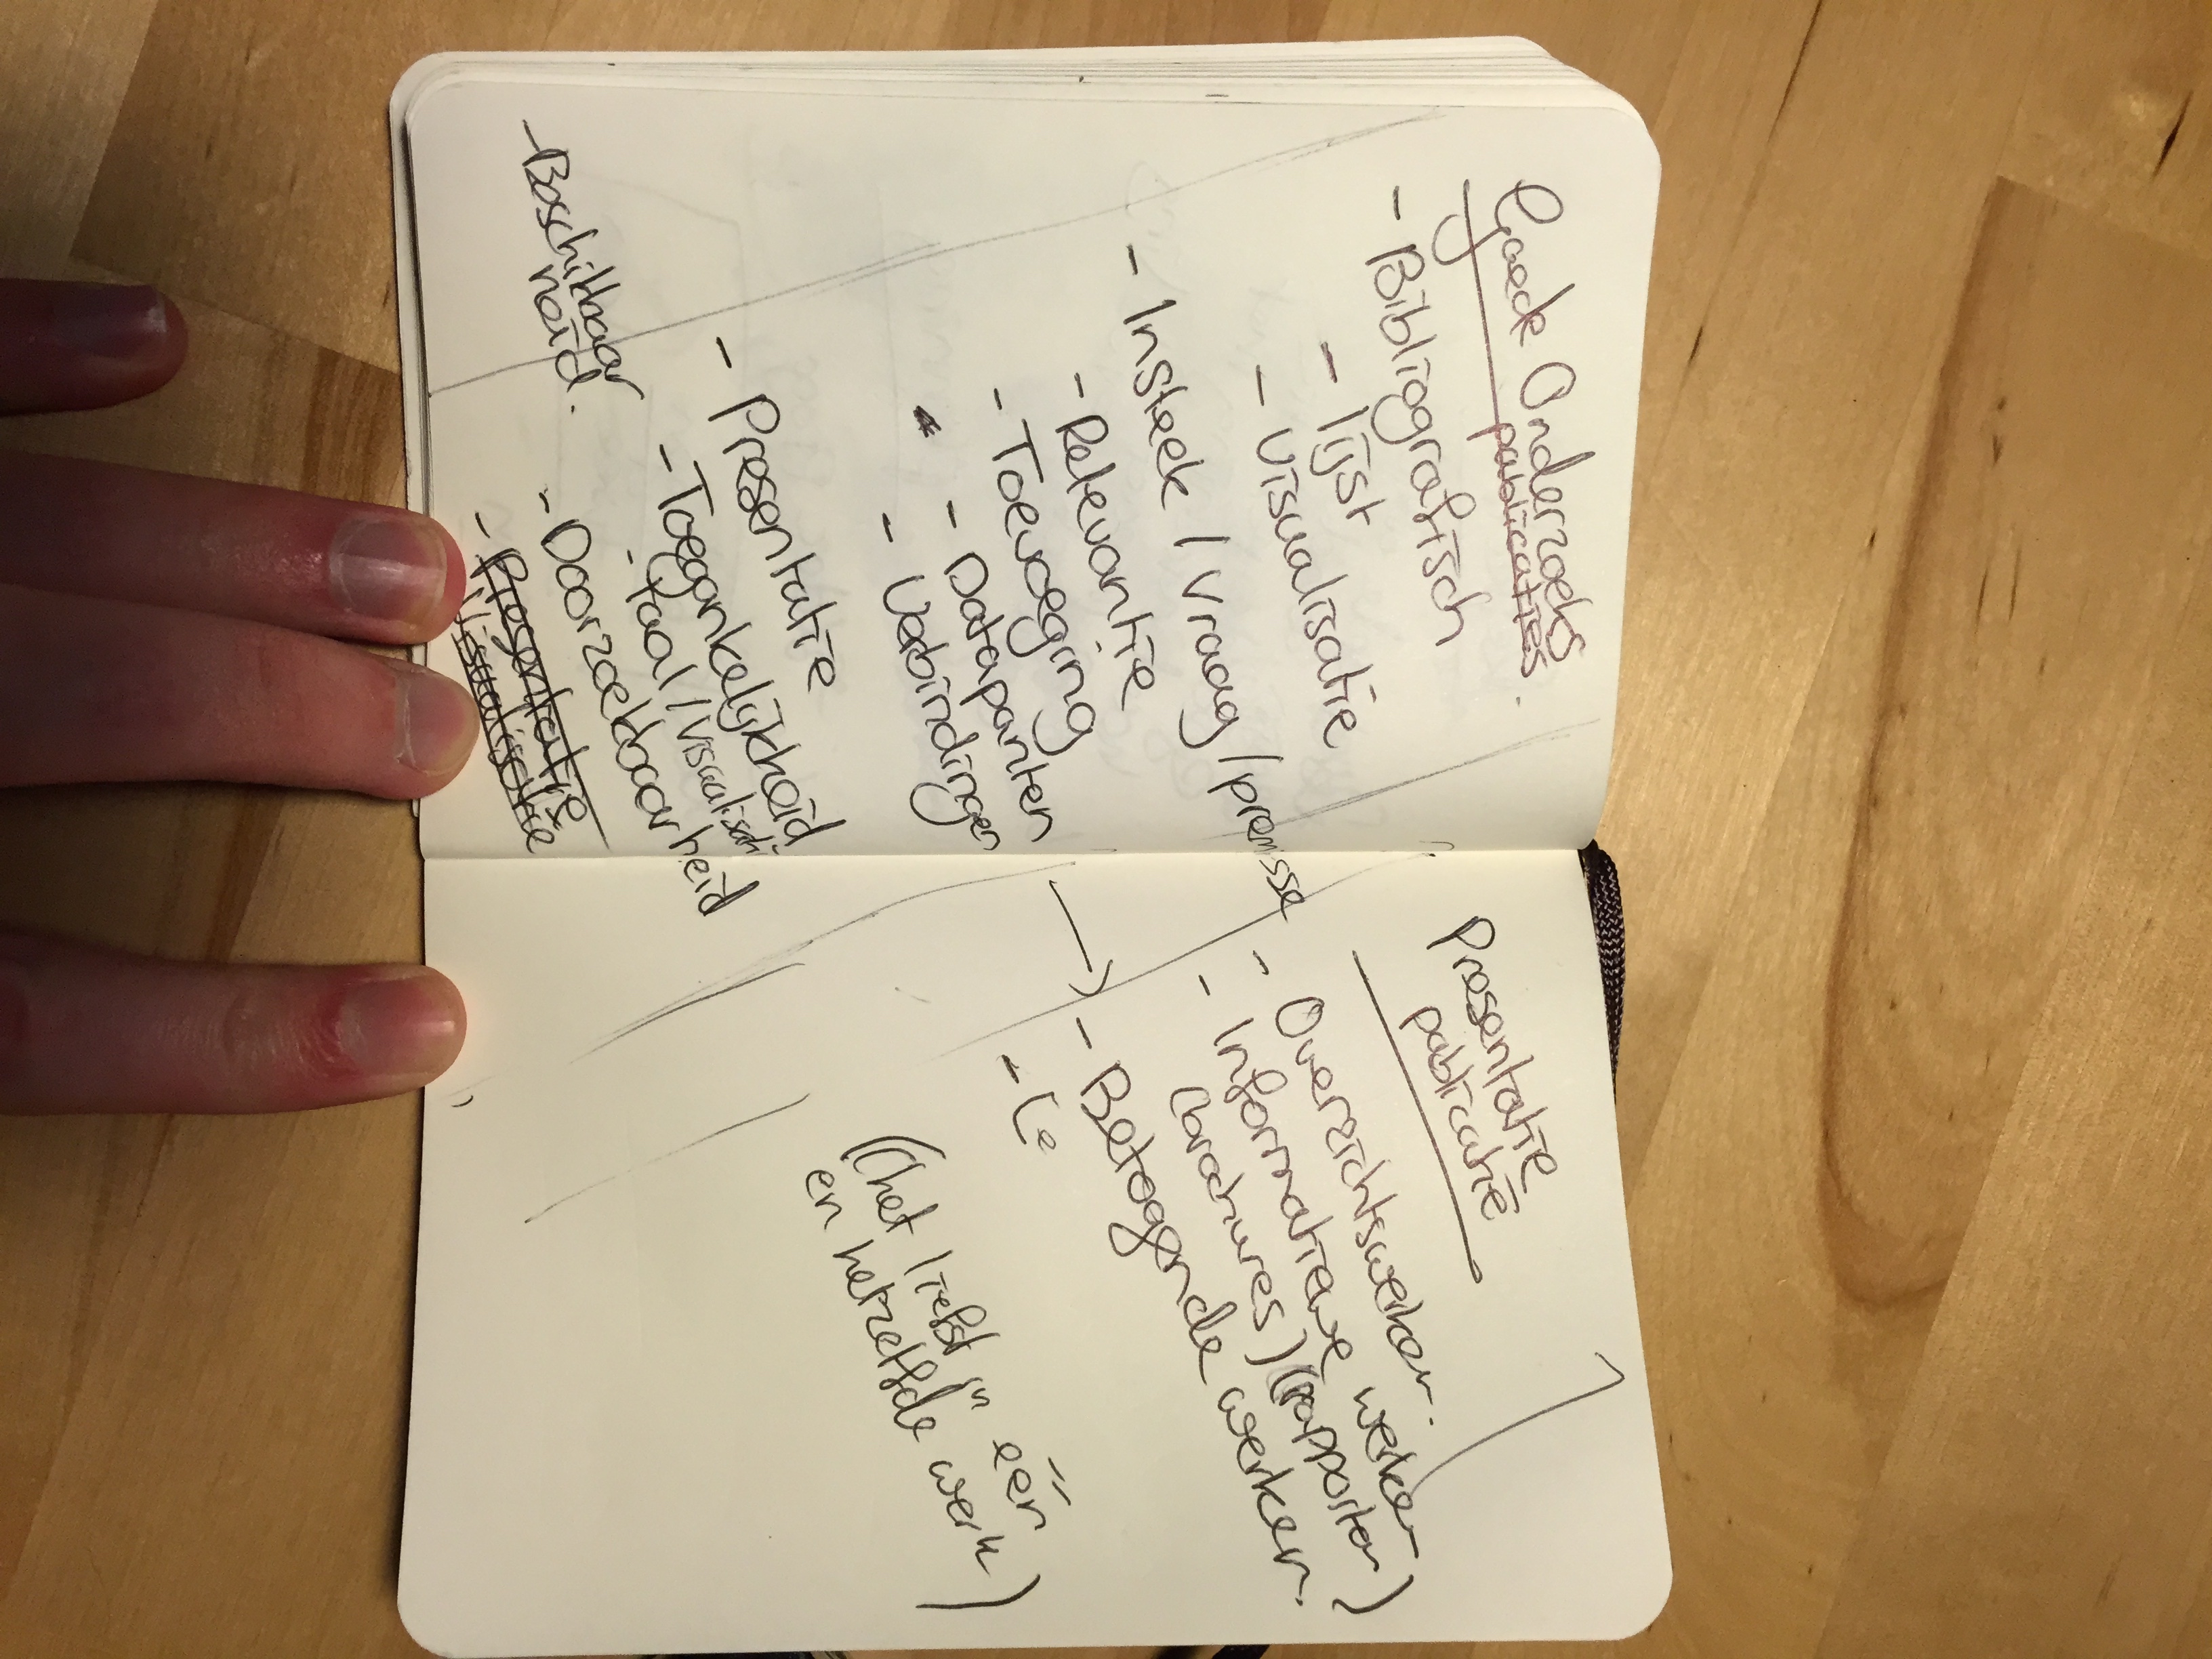 Goede Onderzoeks
publicaties.
- Bibliografisch
- lijst
- Visualisatie
- Insteek / vraag / premisse
- Relevantie
- Toevoeging
- Datapunten
- Verbindingen
- Presentatie
- Toegankelijkheid
- taal / visualisatie
- Doorzoekbaarheid
- Presentatie
Visualisatie
- Beschikbaar
heid.
Presentatie
publicatie
- Overzichtswerken.
- Informatieve werken
(brochures) (rapporten)
→ - Betogende werken.
- Le
(het liefst in één
en hetzelfde werk)